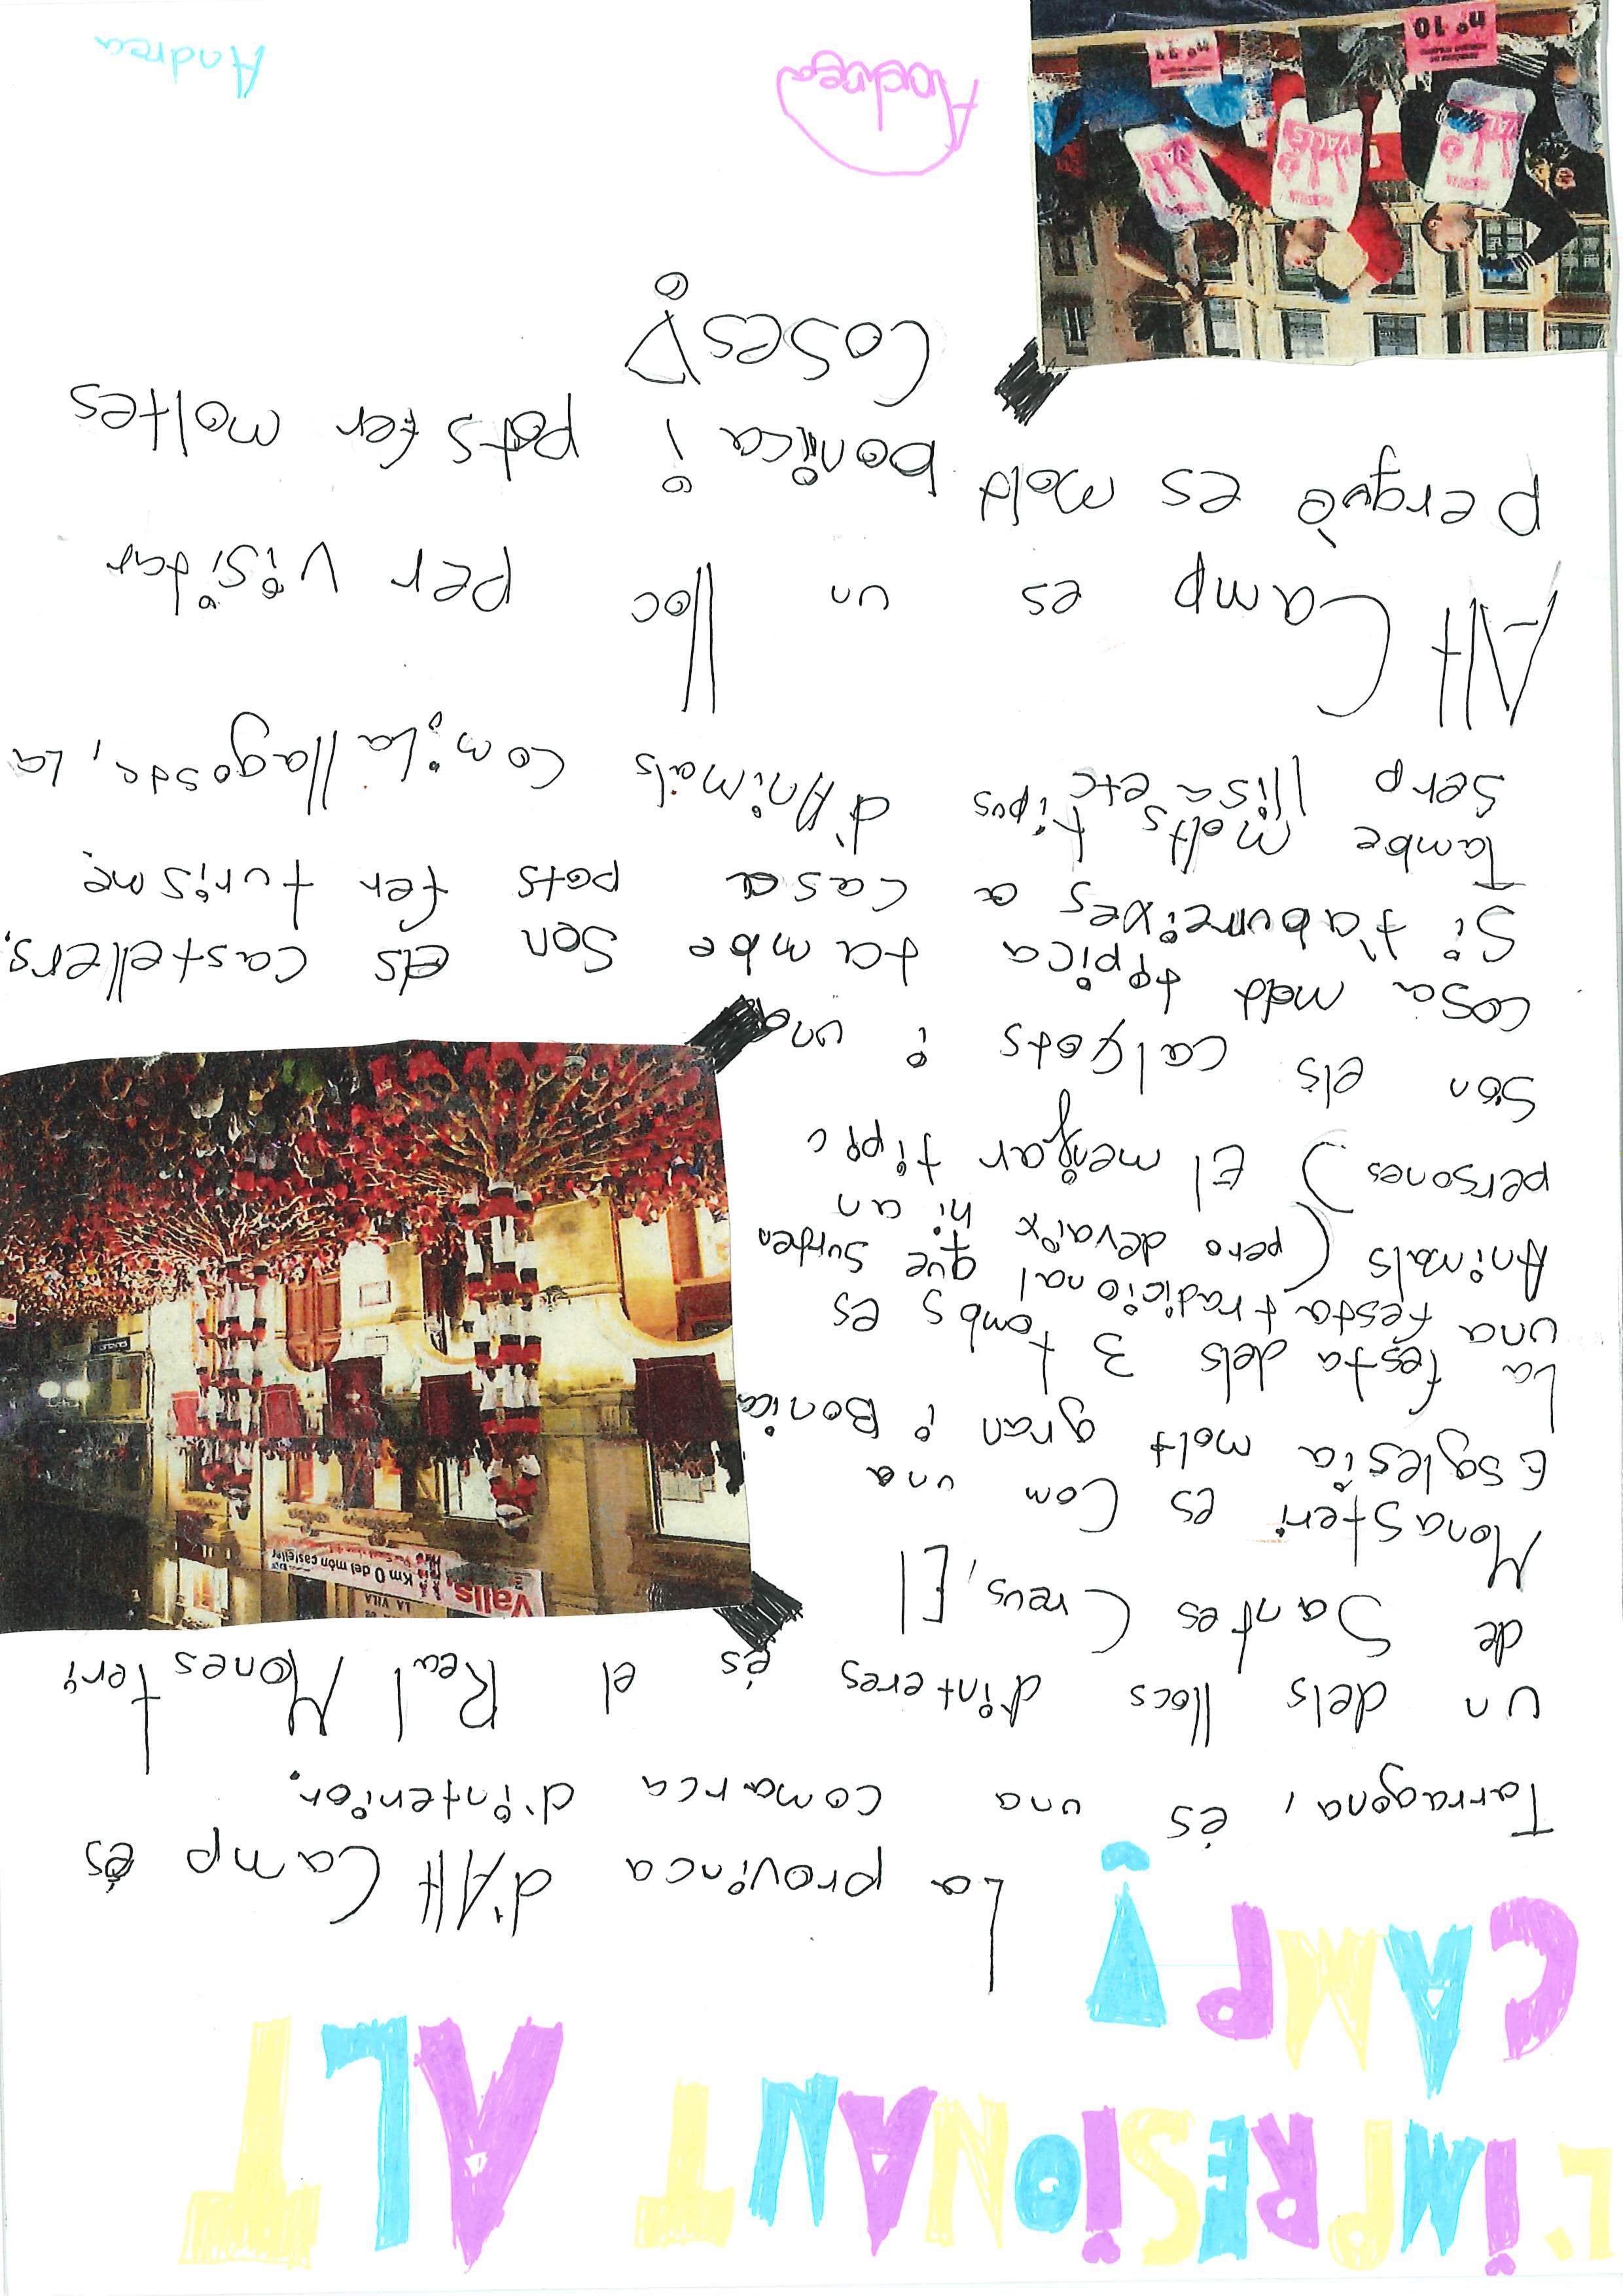 L'IMPRESIONANT ALT
CAMP!
La provinca d'Alt Camp és
Tarragona, és una comarca d'interior.
un dels llocs d'interes és el Real Monesteri
de Santes Creus, El
Monasteri es com una
Esglesia molt gran i Bonica
La festa dels 3 tombs es
una festa tradicional que surten
Animals (pero devaix hi an
persones) El menjar tipic
són els calçots i una
cosa molt tipica tambe son els castellers.
Si t'aburreixes a casa pots fer turisme
Tambe molts tipus d'Animals com; La llagosta, La
serp llisa etc
Alt Camp es un lloc per visitar
perquè es molt bonica i pots fer moltes
coses!
Andrea
Andrea
Valls,
Km 0 del món casteller
LA VILA
VALLS
VALLS
VALLS
nº 10
nº 11